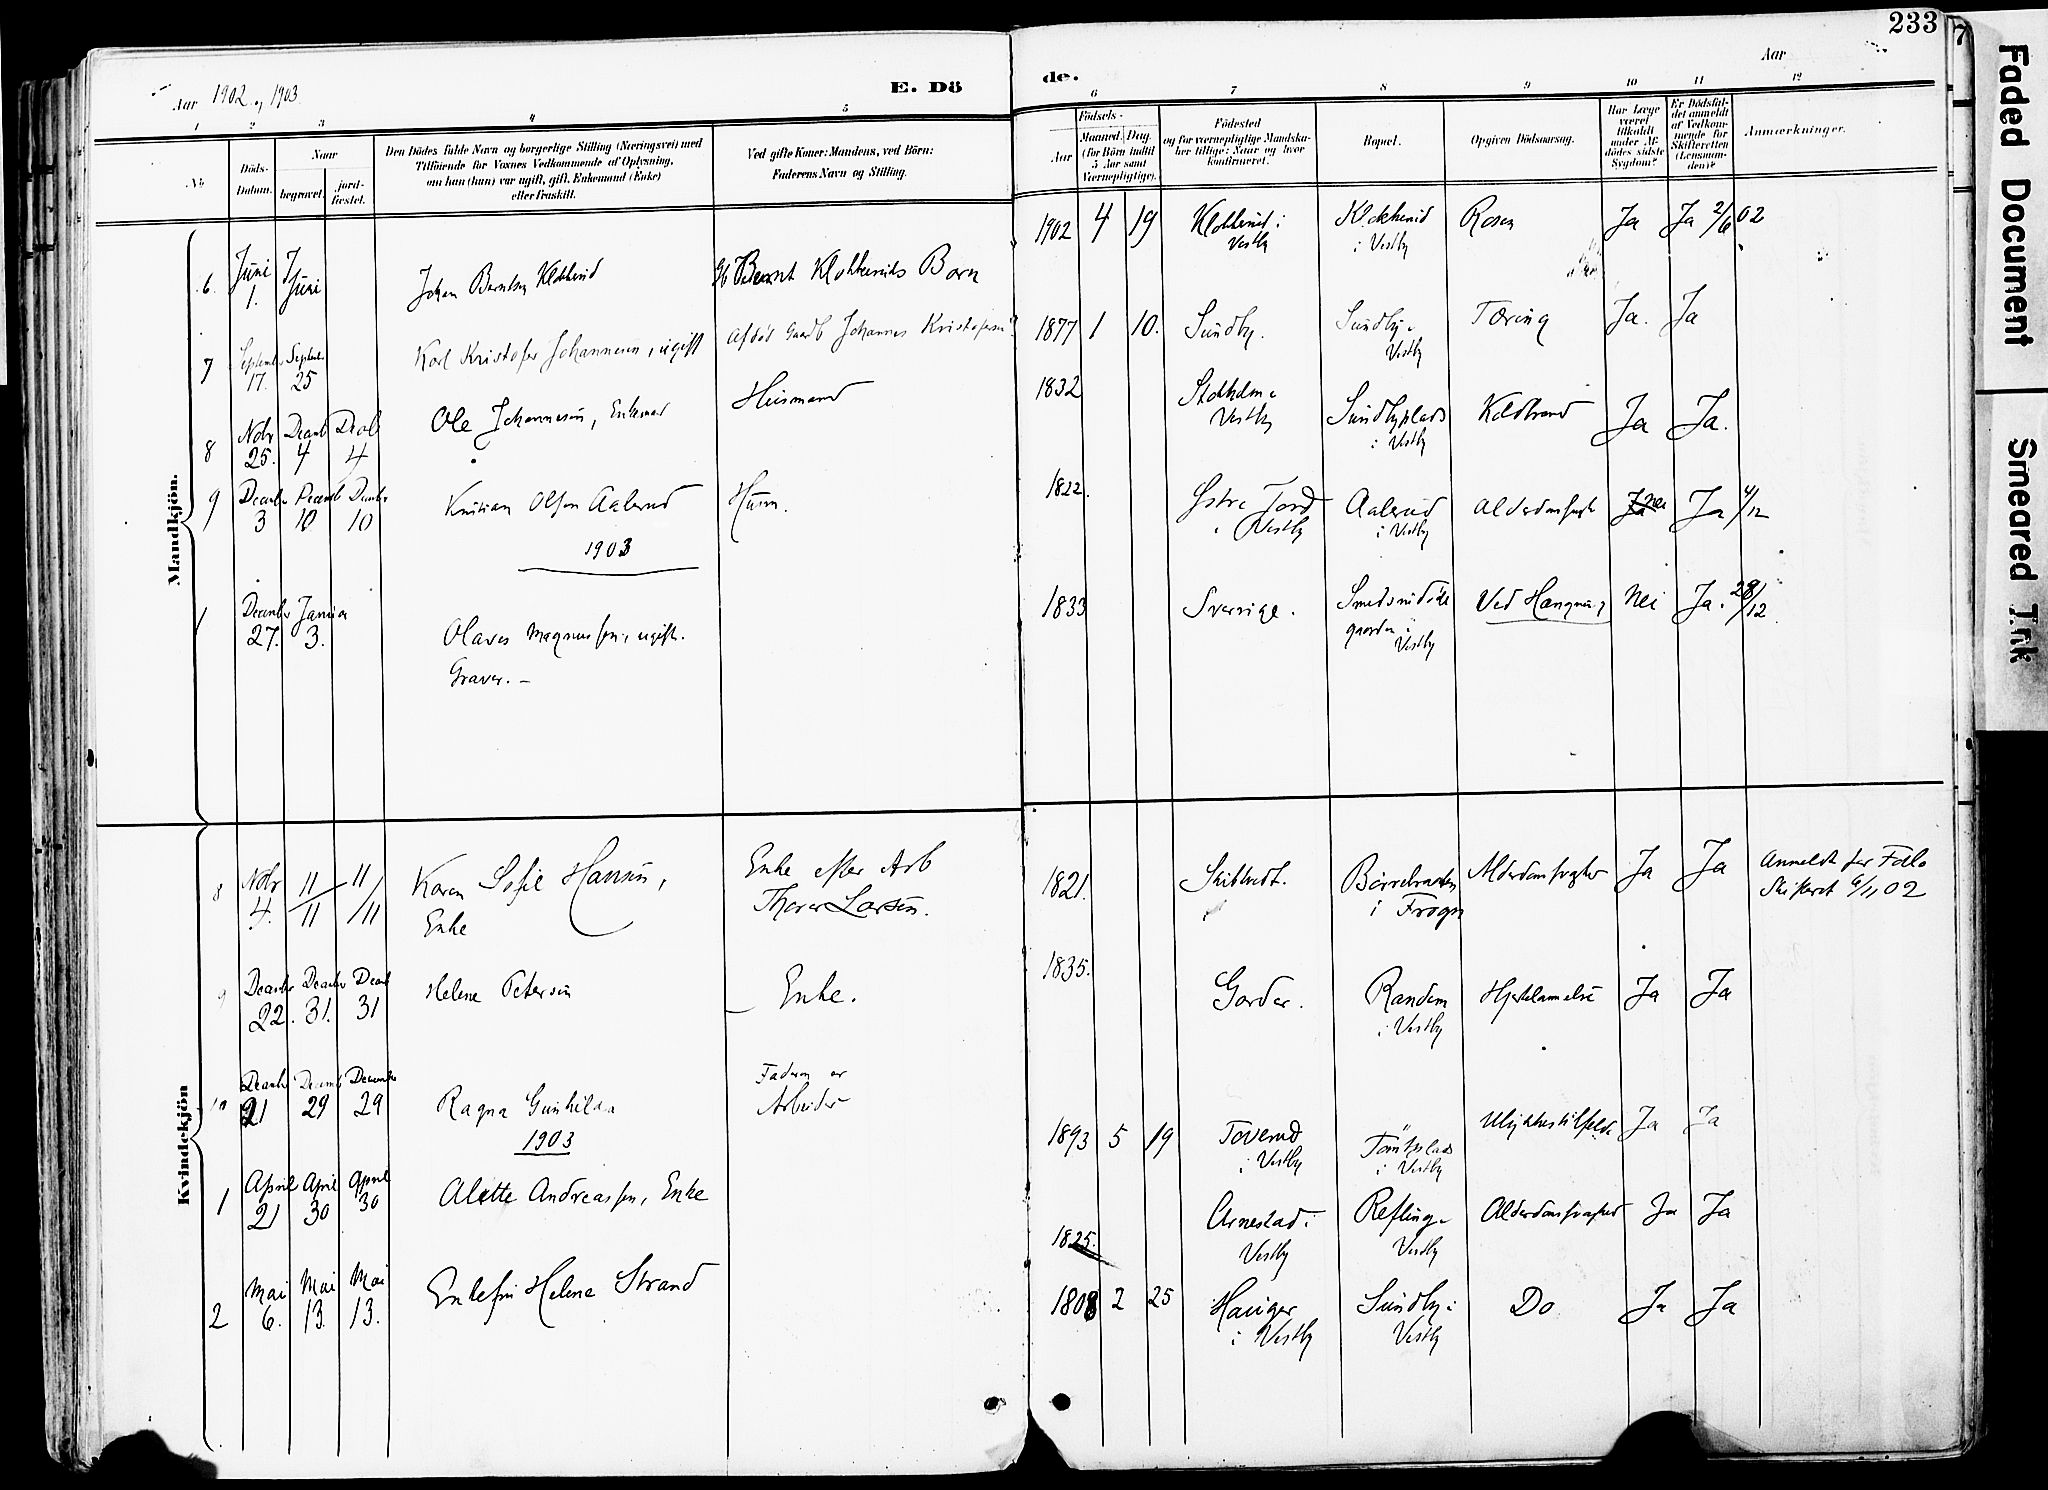 233
7
Faded Document
Smeared Ink
Aar 1902 og 1903
E. Dö
de.
Aar
1 2 3 4 5
6 7 8 9 10 11 12
No.
Döds-
Datum.
Naar
begravet.
jord-
fæstet.
Den Dödes fulde Navn og borgerlige Stilling (Næringsvei) med
Tilföiende for Voxnes Vedkommende af Oplysning,
om han (hun) var ugift, gift, Enkemand (Enke)
eller fraskilt.
Ved gifte Koner: Mandens, ved Börn:
Faderens Navn og Stilling.
Födsels-
Aar
Maaned.
Dag
(for Börn indtil
5 Aar samt
Værnepligtige).
Födested
og for værnepligtige Mandska-
ber tillige: Naar og hvor
konfirmeret.
Bopæl.
Opgiven Dödsaarsag.
Har Læge
været
tilkaldt
under Af-
dödes sidste
Sygdom?
Er Dödsfal-
det anmeldt
af Vedkom-
mende for
Skifteretten
(Lensman-
den)?
Anmærkninger.
Mandkjön.
6. Juni 1. 7 Juni Johan Berntsen Klokkerud Bernt Klokkeruds Barn 1902 4 19 Klokkerud i Vestby Klokkerud i Vestby Rosen Ja Ja 2/6 02
7 September 17. Septbr. 25 Karl Kristofer Johannesen, ugift Afdöd Gaardb Johannes Kristofersen 1877 1 10. Sundby. Sundby i Vestby Tæring Ja. Ja
8 Novbr 25. Decemb 4 Decb 4 Ole Johannesen, Enkemand Husmand 1832 Stokholm i Vestby Sundbyplads i Vestby Koldbrand Ja Ja.
9 Decembr 3 Decemb 10 Decembr 10 Kristian Olsen Aalerud Husm. 1822. Østre Jord i Vestby Aalerud i Vestby Alderdomssvagh Nei Ja 4/12
1903
1 December 27. Januar 3. Olaves Magnussen, ugift.
Graver. - 1833 Sverrige. gaarden i Vestby Ved Hængning Nei Ja. 28/12
Kvindekjön
8 Novbr 4. 11/11 11/11 Karen Sofie Hansen,
Enke Enke efter Arb
Thorer Larsen. 1821. Skibtvedt. i Frogn Alderdomssvaghed Ja Ja Anmeldt for Follo
Skifteret 6/11 02
9 Decembr 22. Decembr 31. Decbr 31 Helene Petersen Enke. 1835. Garder. Randem i Vestby Hjertelammelse Ja Ja
10 Decembr 21 Decemb 29 December 29 Ragna Gunhilda Faderen er
Arbeider 1893 5 19 Toverud i Vestby i Vestby Ulykkestilfælde Ja Ja
1903
1 April 21 April 30 April 30 Alette Andreassen, Enke 1825. Arnestad i Vestby Refling i Vestby Alderdomssvaghed Ja Ja
2 Mai 6. Mai 13. Mai 13. Enkefru Helene Strand 1808 2 25 Hauger i Vestby Sundby i Vestby Do Ja Ja